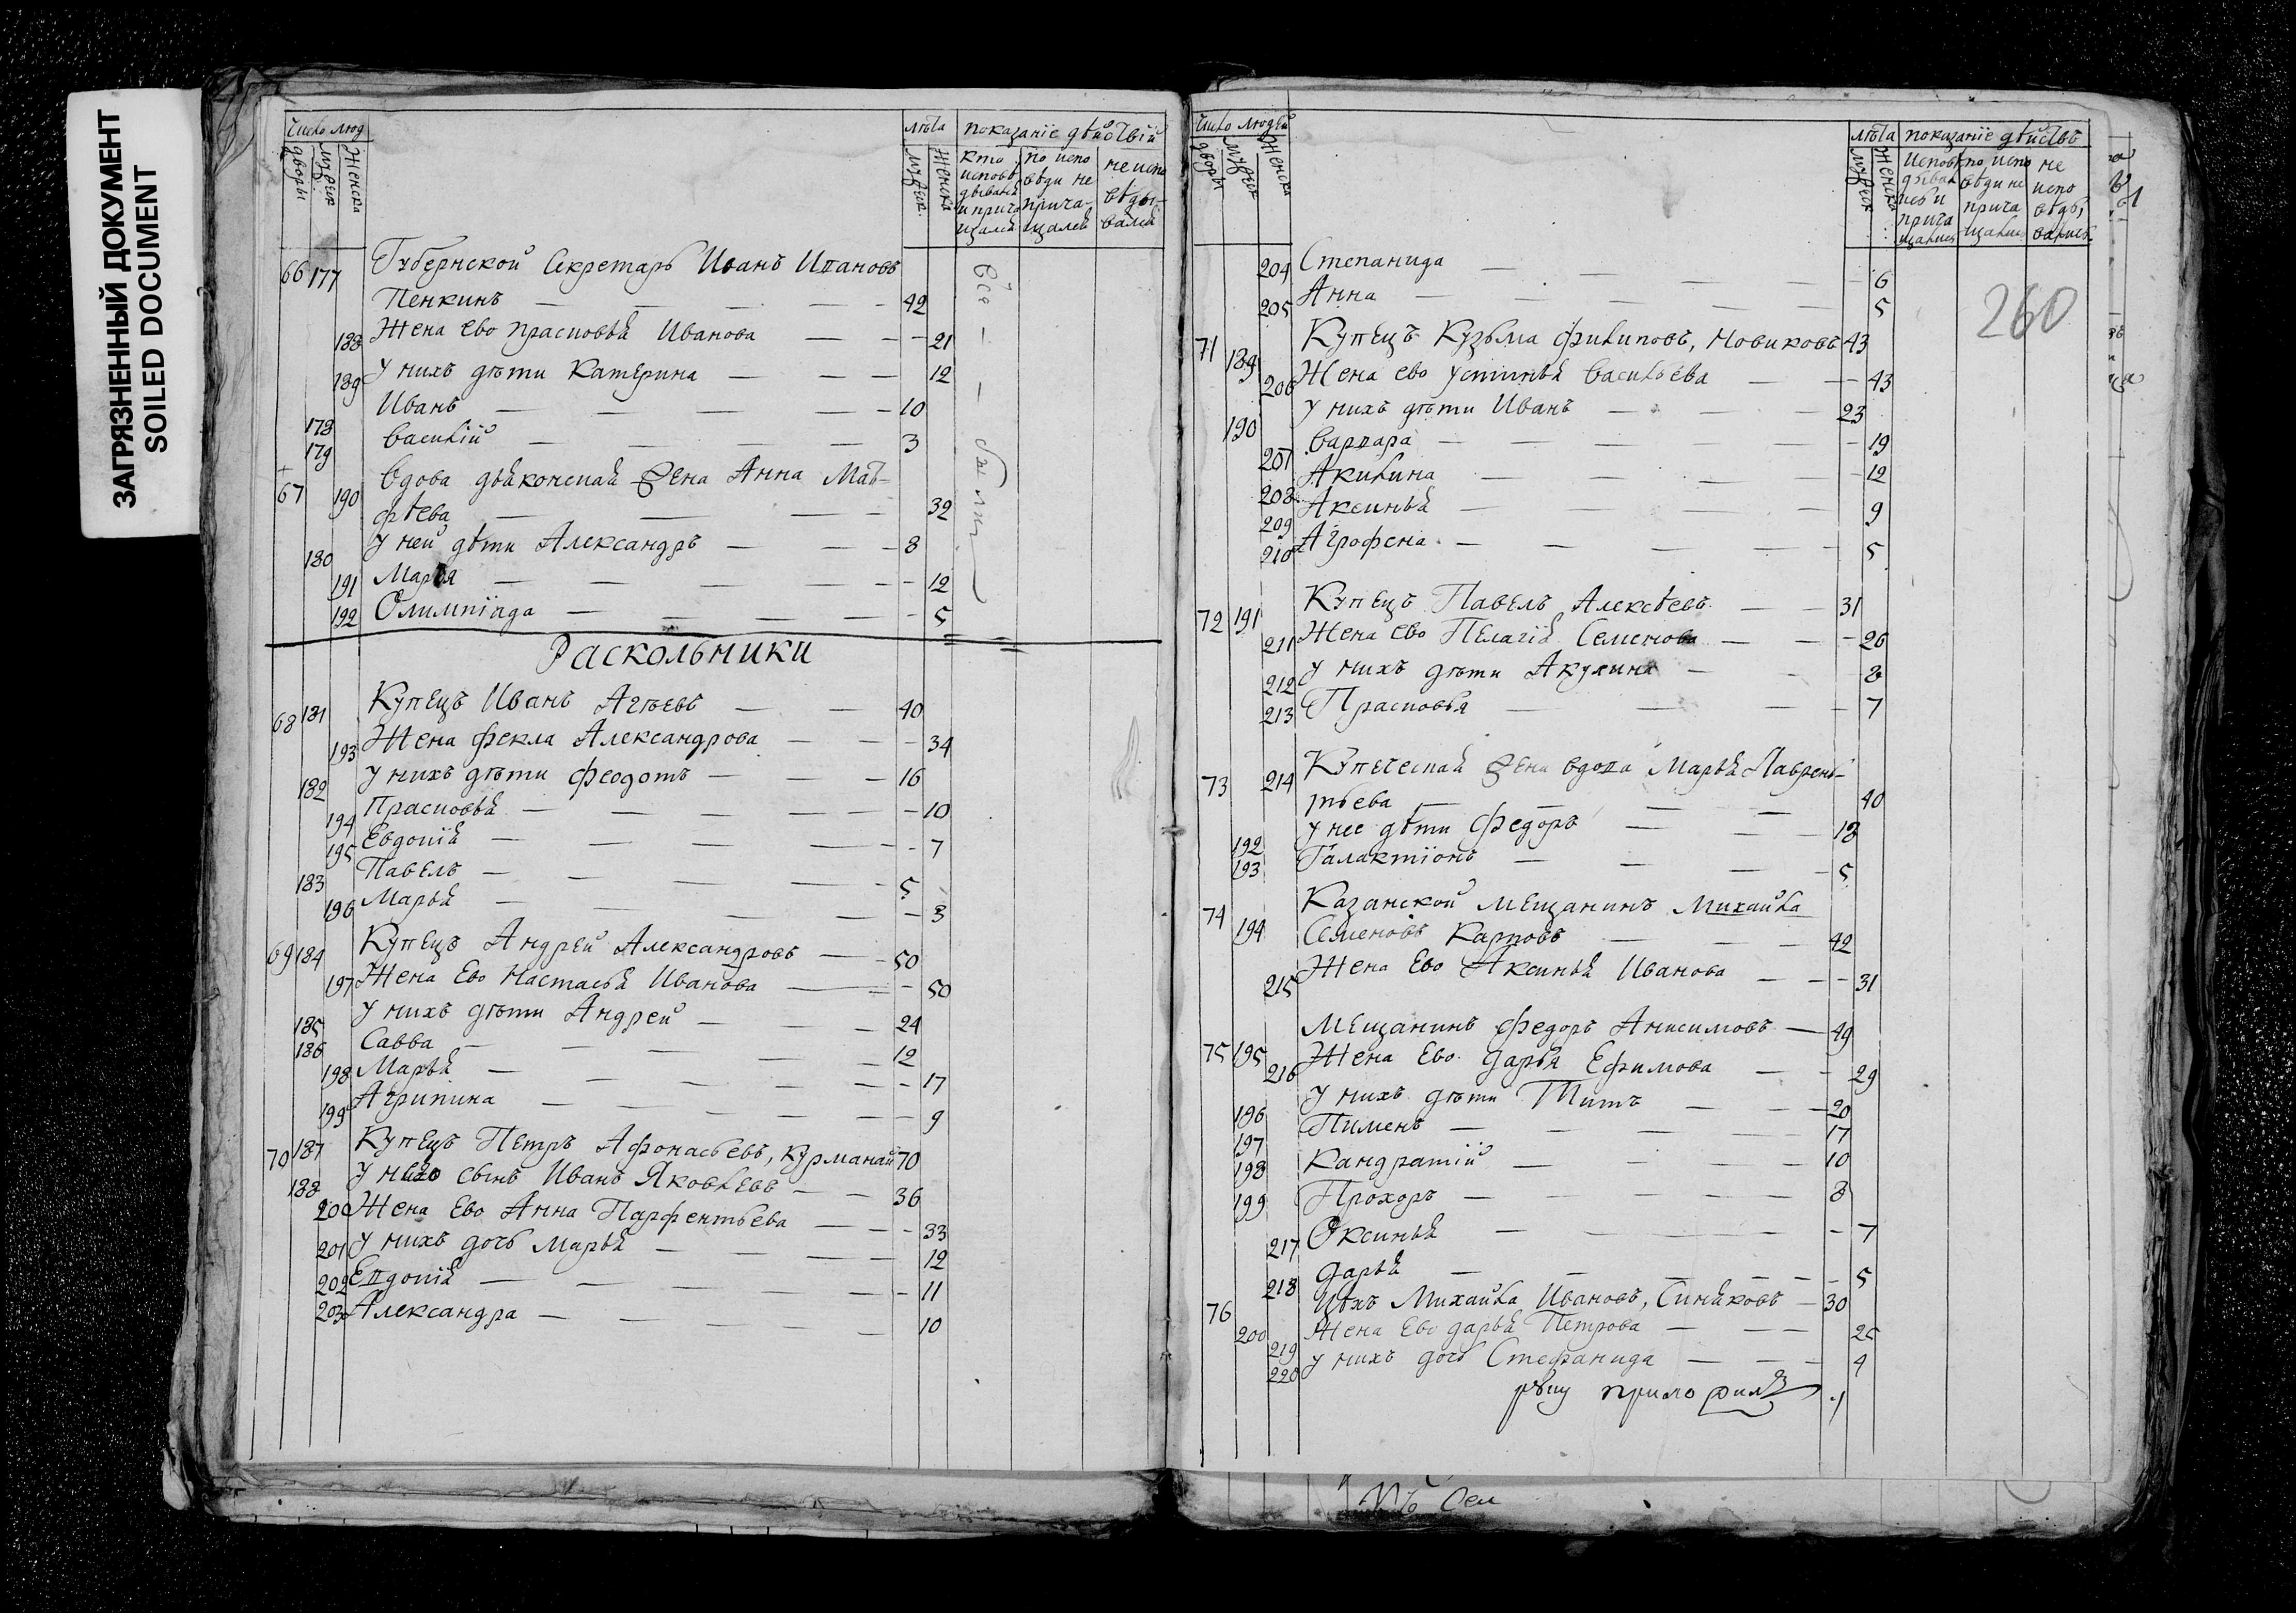 ЗАГРЯЗНЕННЫЙ ДОКУМЕНТ
SOILED DOCUMENT
Число люд
дворы
мужск
женска
лѣта
мужск.
женска
показанїе дѣйствїй
кто исповѣдывался и прича-щался
по испо вѣди не прича-щался
не испо вѣды-вался
66 177 Губернской секретарь Иванъ Ивановъ
Пенкинъ — 42
188 Жена ево Прасковья Иванова — 21
189 У нихъ дѣти Катерина — 12
178 Иванъ — 10
179 Василий — 3
Всѣ — были
67 190 Вдова дьяконская жена Анна Мат-
фѣева — 32
180 У ней дѣти Александръ — 8
191 Марья — 12
192 Олимпїада — 5
Раскольники
68 181 Купецъ Иванъ Агѣевъ — 40
193 Жена Фекла Александрова — 34
182 У нихъ дѣти Феодотъ — 16
194 Прасковья — 10
195 Евдокїя — 7
183 Павелъ — 5
196 Марья — 3
69 184 Купецъ Андрей Александровъ — 50
197 Жена ево Настасья Иванова — 50
185 У нихъ дѣти Андрей — 24
186 Савва — 12
198 Марья — 17
199 Агрипина — 9
70 187 Купецъ Петръ Афонасьевъ, Курманай 70
188 У нево сынъ Иванъ Яковлевъ — 36
200 Жена ево Анна Парфентьева — 33
201 У нихъ дочь Марья — 12
202 Евдокїя — 11
203 Александра — 10
Число людей
дворы
мужск
женска
лѣта
мужск
женска
показанїе дѣйствъ
исповѣдывались и прича щались
по испо вѣди не прича щались
не испо вѣды вались
260
204 Степанида — 6
205 Анна — 5
71 189 Купецъ Кузьма Филиповъ, Новиковъ 43
206 Жена ево Устинья Васильева — 43
190 У нихъ дѣти Иванъ — 23
207 Варвара — 19
208 Акилина — 12
209 Аксинья — 9
210 Агрофена — 5
72 191 Купецъ Павелъ Алексѣевъ — 31
211 Жена ево Пелагїя Семенова — 26
212 У нихъ дѣти Акулина — 8
213 Прасковья — 7
73 214 Купеческая жена вдова Марья Лаврень-
тьева — 40
192 У нее дѣти Федоръ — 18
193 Галактїонъ — 5
74 194 Казанской мещанинъ Михайла
Семеновъ Карповъ — 42
215 Жена ево Аксинья Иванова — 31
75 195 Мещанинъ Федоръ Анисимовъ — 49
216 Жена ево Дарья Ефимова — 29
196 У нихъ дѣти Титъ — 20
197 Пименъ — 17
198 Кандратїй — 10
199 Прохоръ — 8
217 Оксинья — 7
218 Дарья — 5
76 200 Цѣхъ Михайла Ивановъ, Синяковъ — 30
219 Жена ево Дарья Петрова — 25
220 У нихъ дочь Стефанида — 4
руку приложилъ